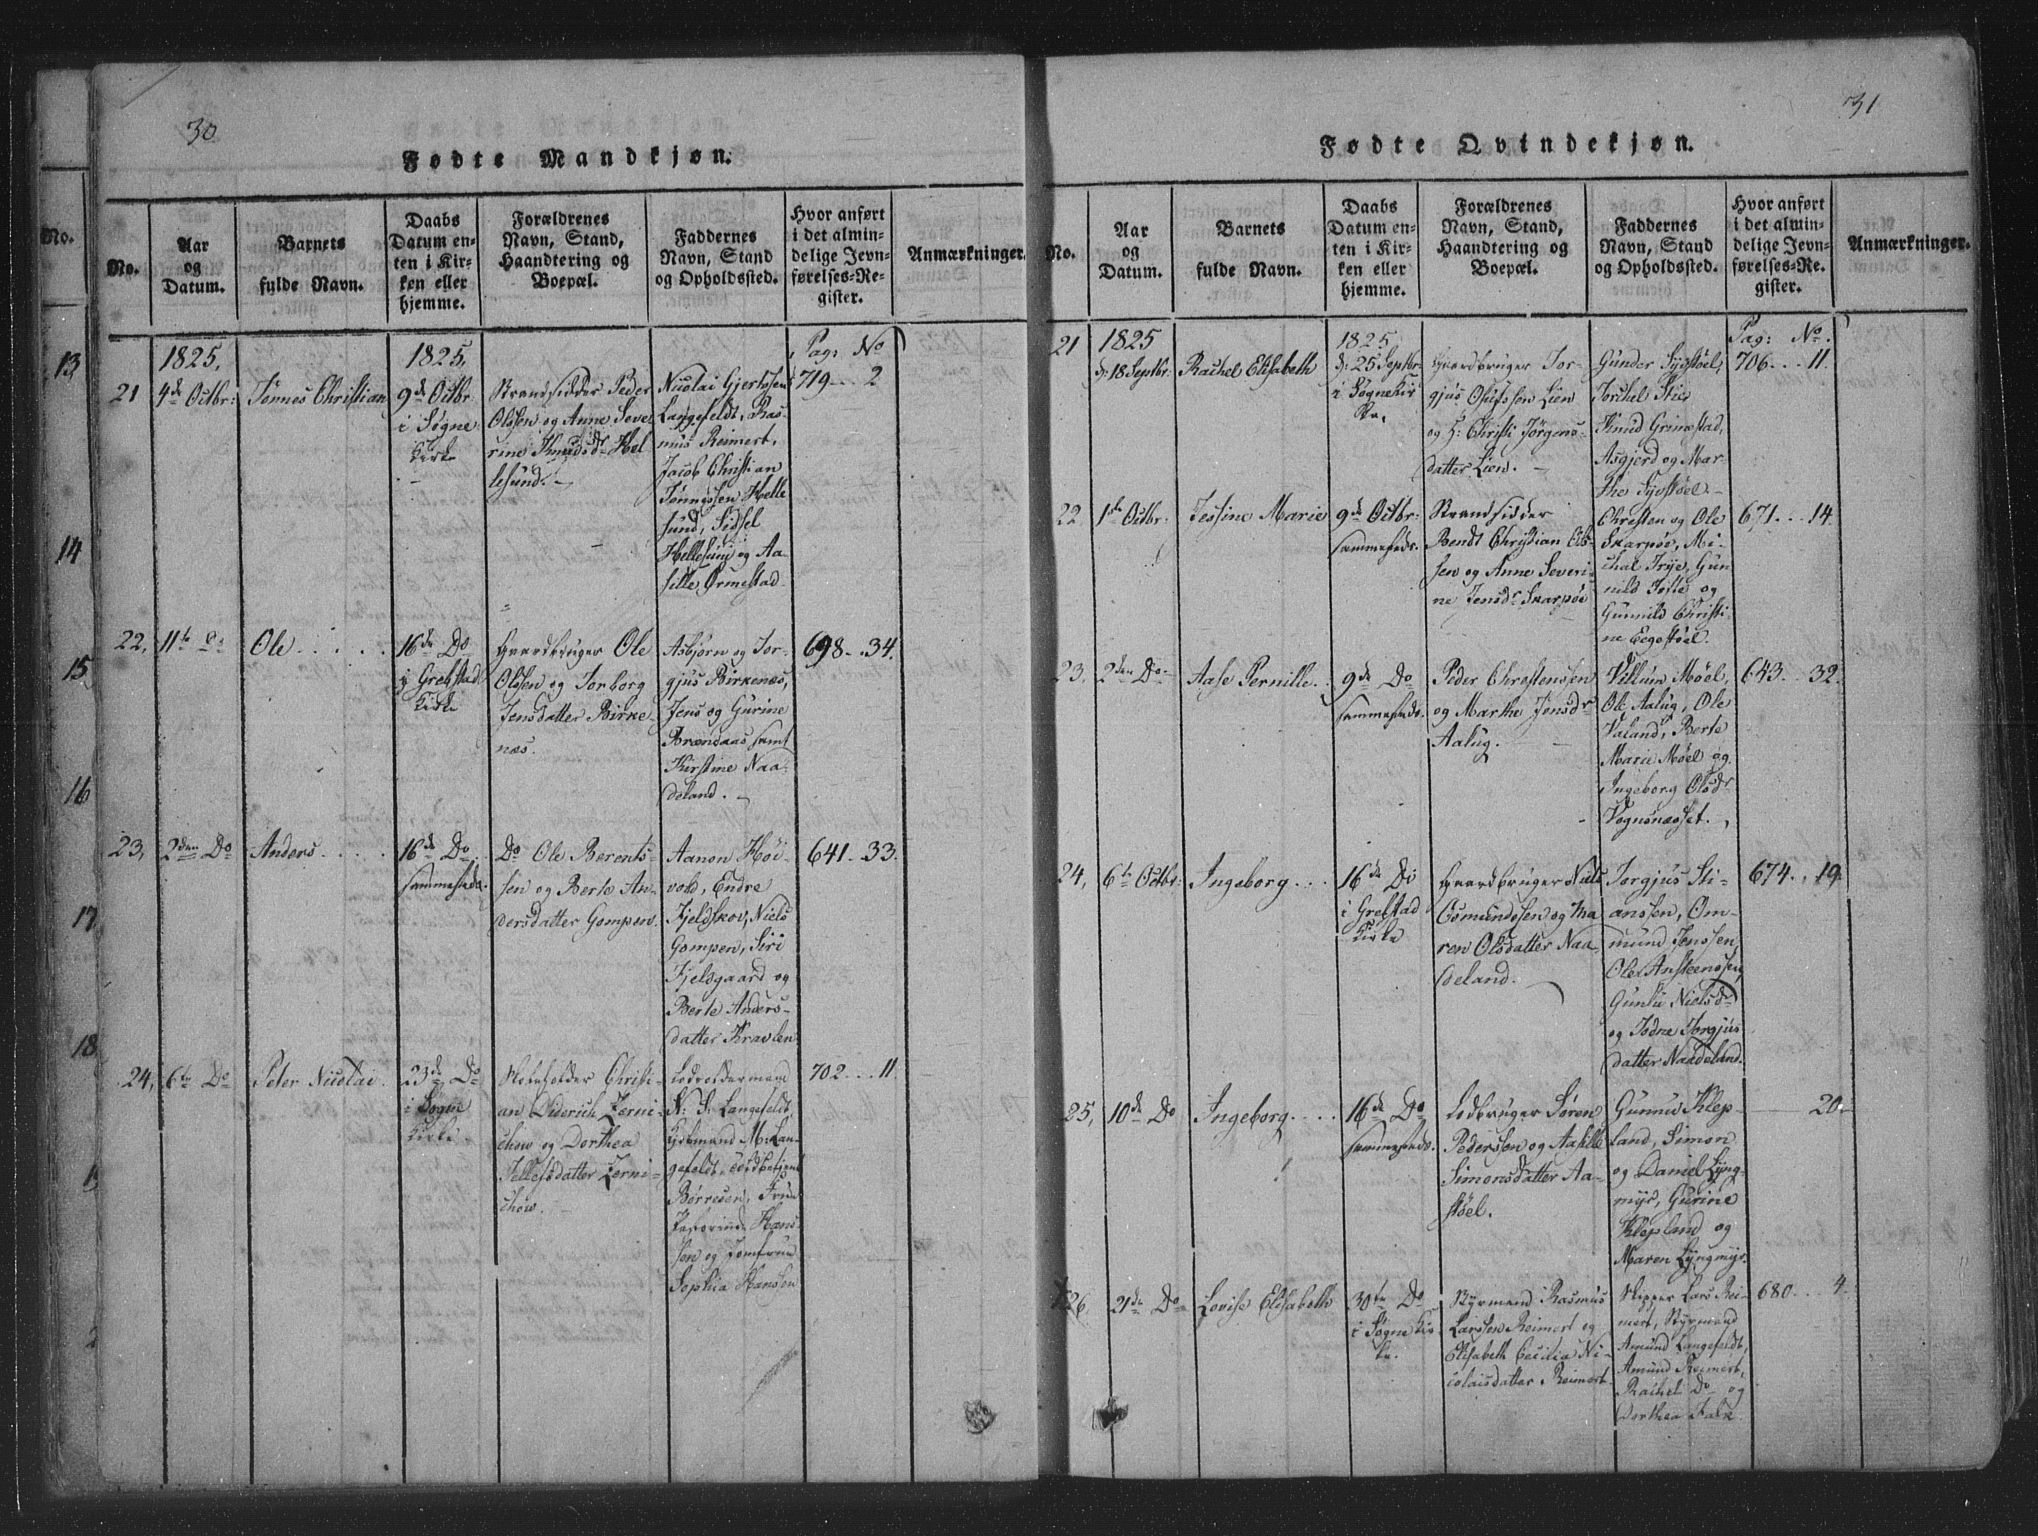 30
Fødte Mandkjøn.
No.
Aar
og
Datum.
Barnets
fulde Navn.
Daabs
Datum en-
ten i Kir-
ken eller
hjemme.
Forældrenes
Navn, Stand,
Haandtering og
Boepæl.
Faddernes
Navn, Stand
og Opholdssted.
Hvor anført
i det almin-
delige Jevn-
førelses-Re-
gister.
Anmærkninger.
No.
13
14
15
16
17
18
21
1825.
4de Octbr:
Tønnes Christian
1825.
9de Octbr.
i Søgne
Kirke
Strandsidder Peder
Olssen og Anne Seve
rine Knudsdr Hel
lesund.
Nicolai Gjertssen
Langefeldt, Ras-
mus Reimert,
Jacob Christian
Tønnessen Helle
sund, Sidsel
Hellesund og Aa-
sille Ormestad
Pag: No
719 2
22.
11te Do
Ole
16de Do
i Grefstad
Kirke
Gaardbruger Ole
Olssen og Torborg
Jensdatter Birke-
næs.
Asbjørn og Tor-
gjus Birkenæs,
Jens og Gurine
Brændaas samt
Kirstine Naa-
deland.
698 34.
23,
2den Do
Anders
16de Do
sammesteds.
Do Ole Berents-
sen og Berte An-
dersdatter Gompen.
Aanon Høi-
vold, Endre
Fjeldskov, Niels
Gompen, Siri
Fjelsgaard og
Berte Anders-
datter Kravlen
641 33.
24,
6te Do
Peter Nicolai
23de Do
i Søgne
Kirke.
Christi-
an Diderich Zerni-
chow og Dorthea
Tellefsdatter Zerni-
chow.
Lodsoldermand
N: S: Langefeldt,
Kjøbmand M: Lan-
gefeldt,
Børresen,
Hans-
sen og Jomfrue
Sophia Hanssen
702 11.
31
Fødte Qvindekjøn.
No.
Aar
og
Datum.
Barnets
fulde Navn.
Daabs
Datum en-
ten i Kir-
ken eller
hjemme.
Forældrenes
Navn, Stand,
Haandtering og
Boepæl.
Faddernes
Navn, Stand
og Opholdssted.
Hvor anført
i det almin-
delige Jevn-
førelses-Re-
gister.
Anmærkninger.
21
1825
d: 18 Septbr.
Rachel Elisabeth
1825
d: 25 Septbr.
i Søgne Kir
ke.
Gaardbruger Tor-
gjus Olufssen Lien
og H: Christi Jørgens-
datter Lien.
Gunder Sygstøel,
Torkel Stie,
Knud Grimestad,
Asgjerd og Mar-
the Sygstøel
Pag: No.
706 11.
22
1ste Octbr:
Jessine Marie
9de Octbr:
sammesteds.
Strandsidder
Bendt Christian
sen og Anne Severi-
ne Jensdr Skarpøe
Christen og Ole
Skarpøe, Mi-
chal Trye, Gun
nild Tofte og
Gunnild Christi
ne Eegestøel.
671 14.
23,
2den Do
Aase Pernille
9de Do
sammesteds.
Peder Christenssen
og Marthe Jensdr
Aalug.
Villum Møel,
Ole Aalug, Ole
Valand, Berte
Marie Møel og
Ingeborg Olsdr
Vognsnæsset.
643 32.
24,
6te Octbr:
Ingeborg
16de Do
i Grefstad
Kirke
Gaardbruger Niels
Osmundssen og Ma
ren Olsdatter Naa-
deland.
Torgjus Sti-
anssen, Om-
mund Jenssen,
Ole Ansteenssen,
Nielsd
og Todne Torgjus
datter Naadeland.
674 19.
25,
10de Do
Ingeborg
16de Do
sammesteds.
Lodbruger Søren
Pederssen og Aasille
Simonsdatter Aa-
støel.
Gunnu Klep-
land, Simon
og Daniel Lÿng-
myr, Gurine
Klepland og
Maren Lÿngmyr.
20.
26.
21de Do
Lovise Elisabeth
30te Do
i Søgne Kir
ke.
Styrmand Rasmus
Larssen Reimert og
Elisabeth Cecilia Ni-
colaisdatter Reimert
Skipper Lars Rei-
mert, Styrmand
Amund Langefeldt,
Amund Reimert,
Rachel Do og
Dorthea Falk
680 4.